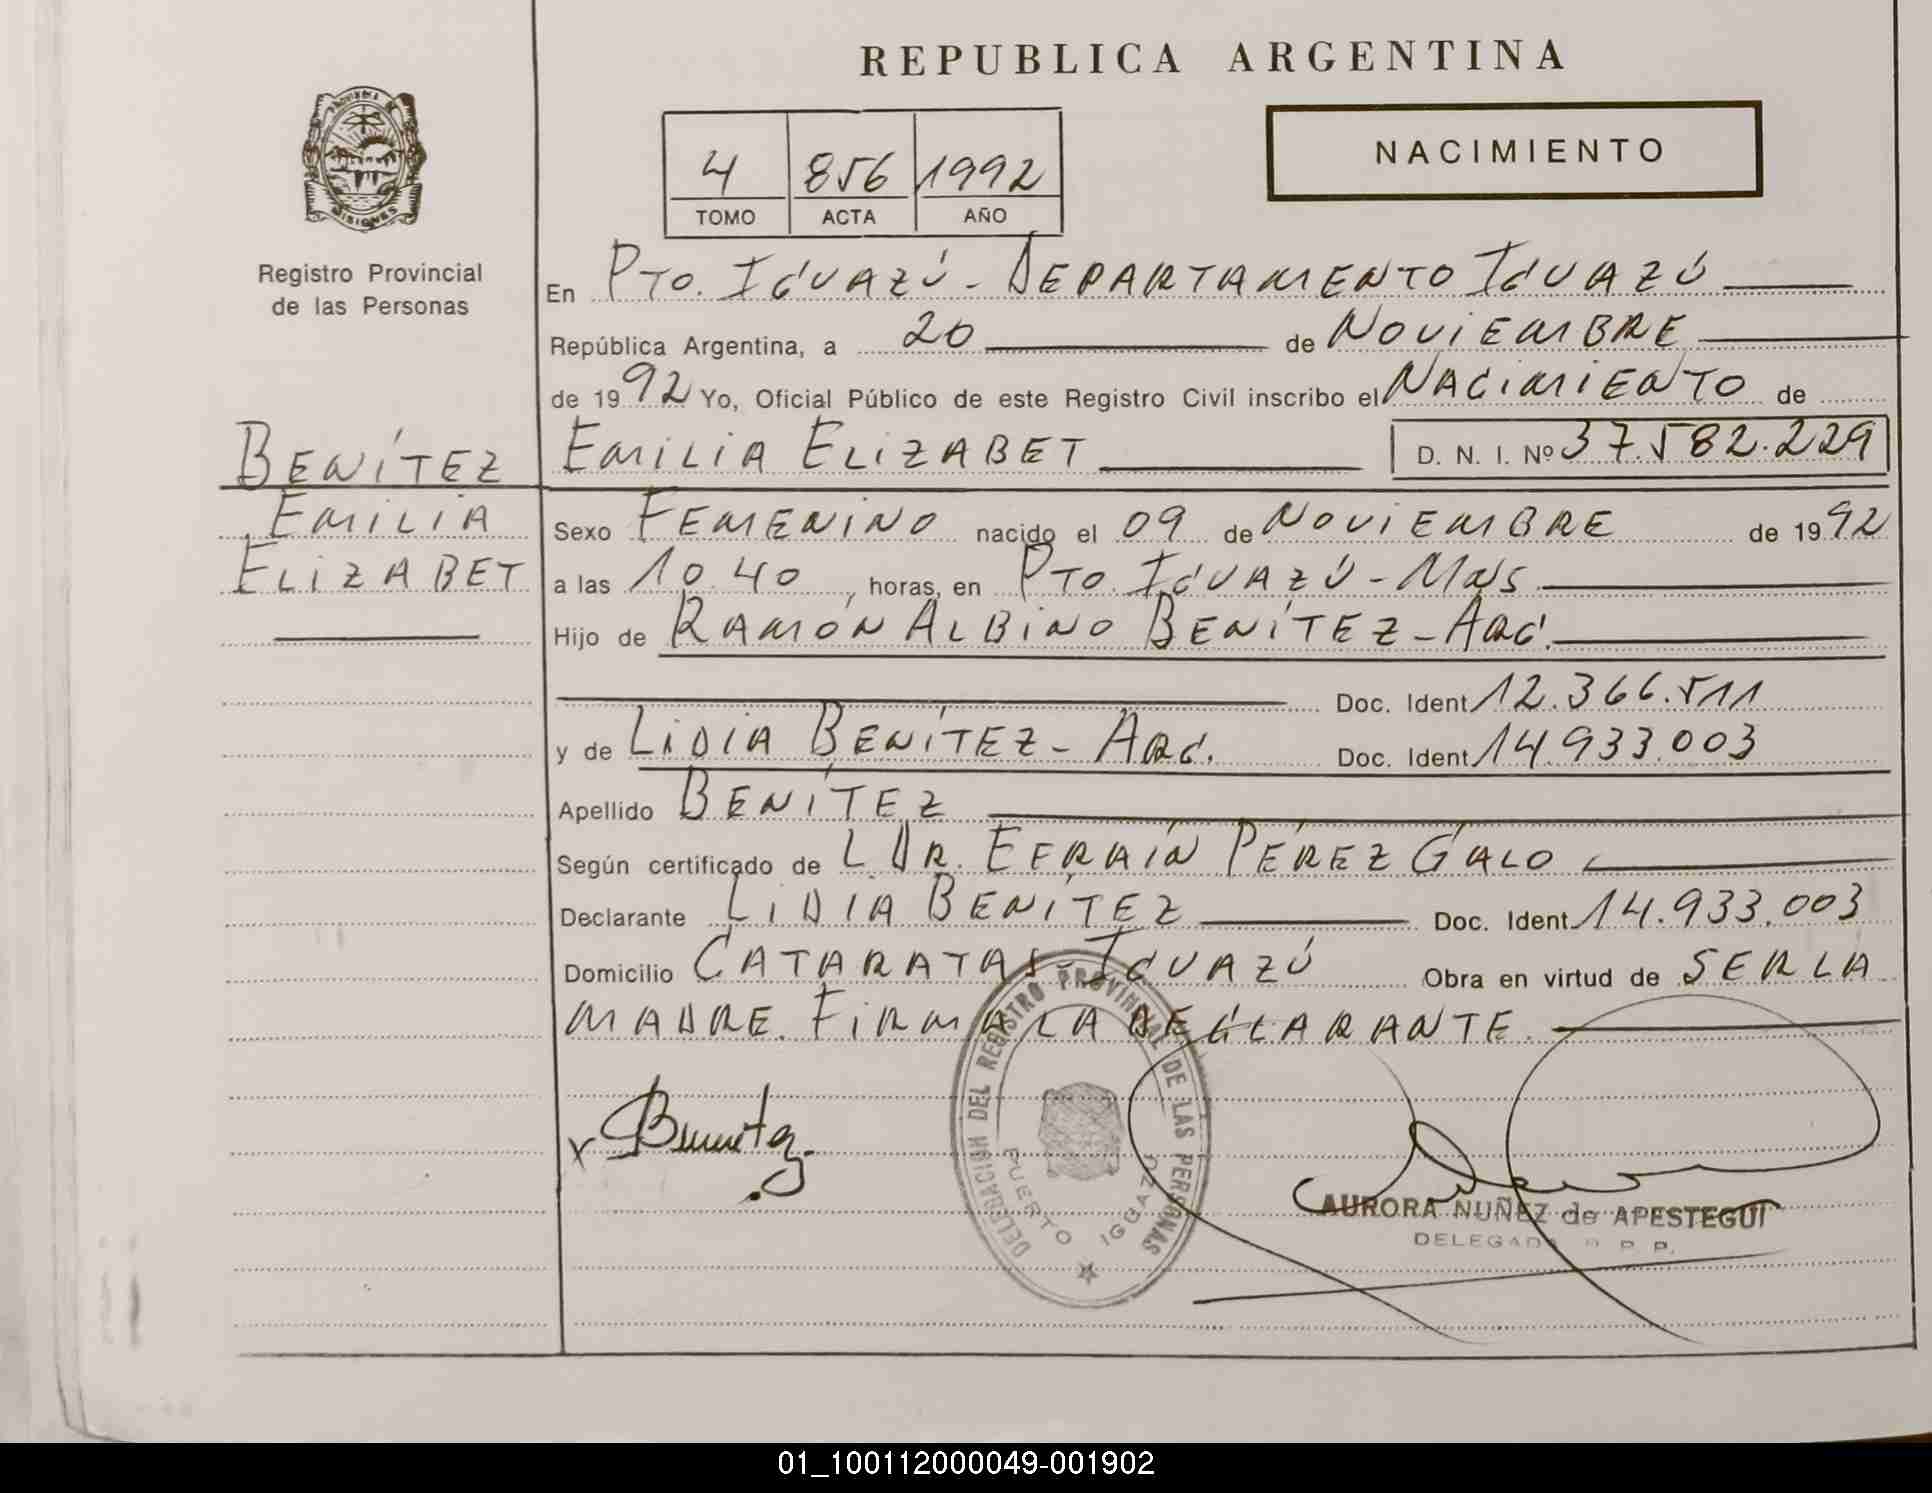 REPUBLICA ARGENTINA
NACIMIENTO
4 856 1992
TOMO ACTA AÑO
PROVINCIA DE
MISIONES
Registro Provincial
de las Personas
En PTO. IGUAZÚ - DEPARTAMENTO IGUAZÚ
República Argentina, a 20 de NOVIEMBRE
de 1992 Yo, Oficial Público de este Registro Civil inscribo el NACIMIENTO de
BENÍTEZ
EMILIA
ELIZABET
EMILIA ELIZABET D. N. I. Nº 37.582.229
Sexo FEMENINO nacido el 09 de NOVIEMBRE de 1992
a las 10.40, horas, en PTO. IGUAZÚ - MNS
Hijo de RAMÓN ALBINO BENÍTEZ - ARG.
Doc. Ident 12.366.511
y de LIDIA BENÍTEZ - ARG. Doc. Ident 14.933.003
Apellido BENÍTEZ
Según certificado de L DR. EFRAÍN PÉREZ GALO
Declarante LIDIA BENÍTEZ Doc. Ident 14.933.003
Domicilio CATARATAS - IGUAZÚ Obra en virtud de SER LA
MADRE. FIRMA LA DECLARANTE.
x Benitez
DELEGACION DEL REGISTRO PROVINCIAL DE LAS PERSONAS
PUERTO IGUAZU
AURORA NUÑEZ de APESTEGUI
DELEGADA R. P. P.
01_100112000049-001902